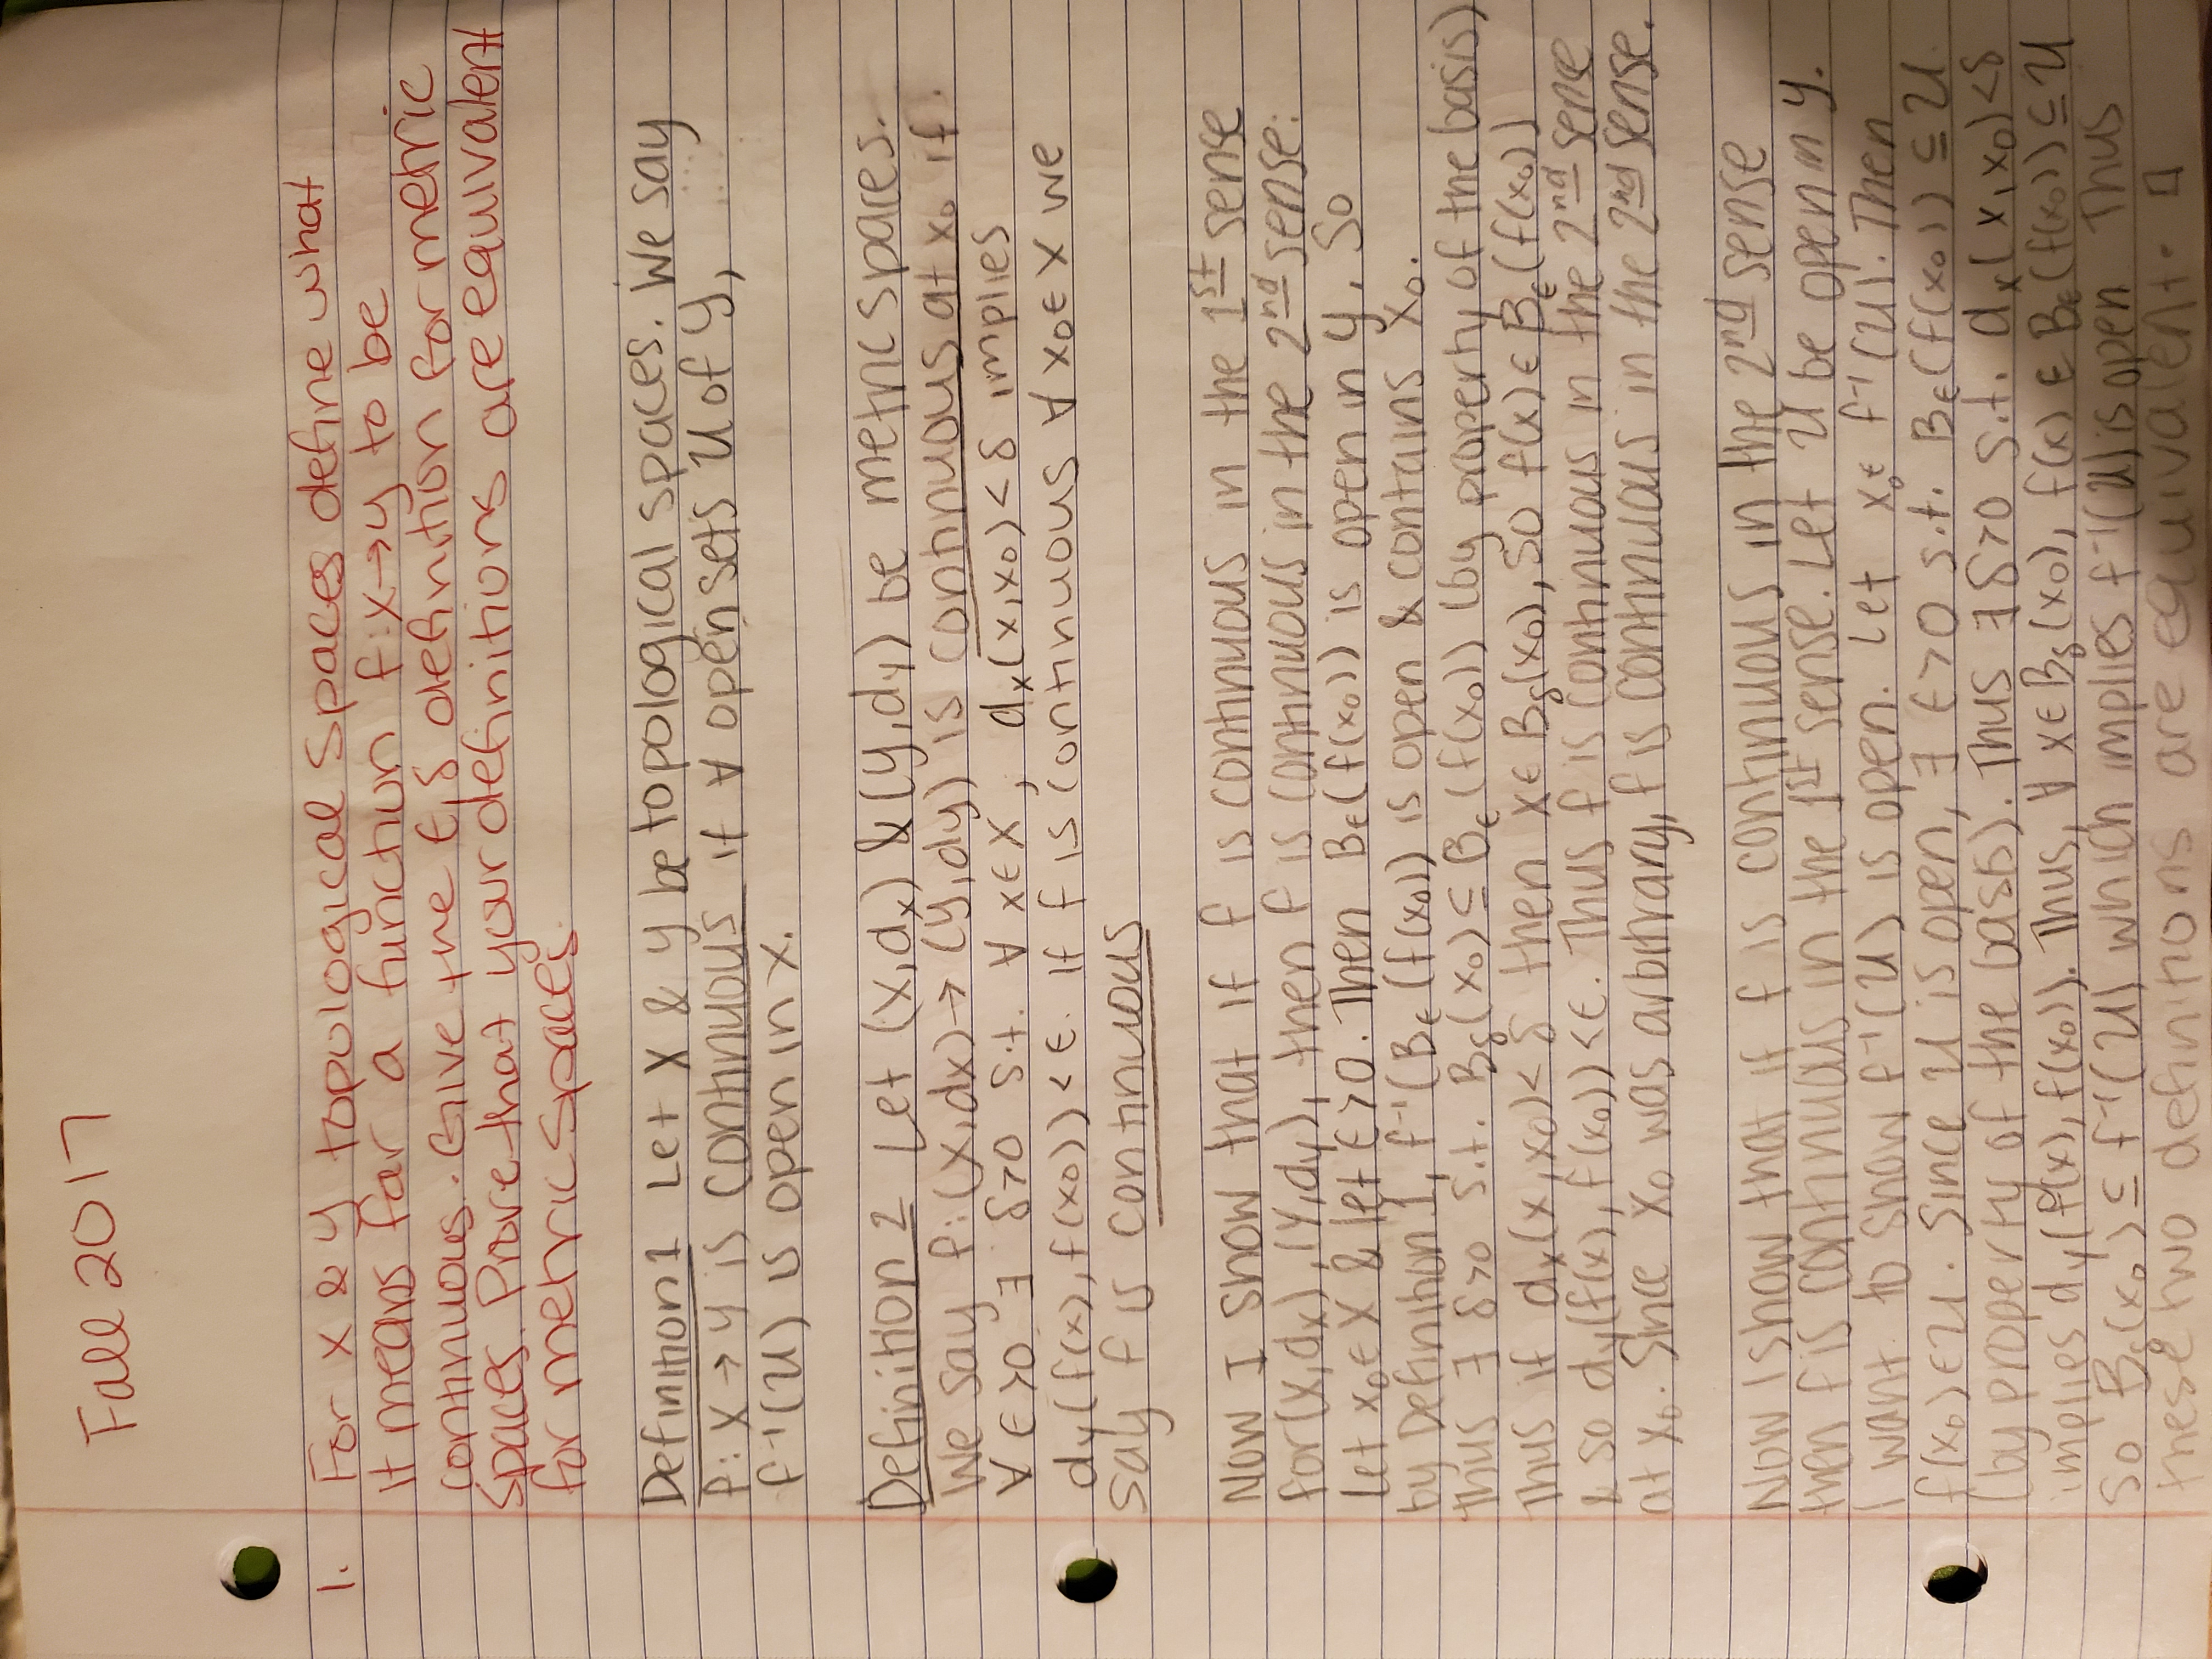 Fall 2017
1. For X & Y topological spaces define what
it means for a function f:X→Y to be
continuous. Give the ε,δ definition for metric
spaces. Prove that your definitions are equivalent
for metric spaces.
Definition 1 Let X & Y be topological spaces. We say
f: X → Y is continuous if ∀ open sets U of Y,
f⁻¹(U) is open in X.
Definition 2 Let (X,dₓ) & (Y,d_Y) be metric spaces.
We say f:(X,dₓ)→(Y,d_Y) is continuous at x₀ if
∀ ε>0 ∃ δ>0 s.t. ∀ x∈X, dₓ(x,x₀)<δ implies
d_Y(f(x),f(x₀))<ε. If f is continuous ∀ x₀∈X we
say f is continuous
Now I show that if f is continuous in the 1st sense
for (X,dₓ),(Y,d_Y), then f is continuous in the 2nd sense:
Let x₀∈X & let ε>0. Then B_ε(f(x₀)) is open in Y. So
by Definition 1, f⁻¹(B_ε(f(x₀)) is open & contains x₀.
Thus ∃ δ>0 s.t. B_δ(x₀)⊆B_ε(f(x₀)) (by property of the basis)
Thus if dₓ(x,x₀)<δ then x∈B_δ(x₀), so f(x)∈B_ε(f(x₀))
& so d_Y(f(x),f(x₀))<ε. Thus f is continuous in the 2nd sense
at x₀. Since x₀ was arbitrary, f is continuous in the 2nd sense.
Now I show that if f is continuous in the 2nd sense
then f is continuous in the 1st sense. Let U be open in Y.
I want to show f⁻¹(U) is open. Let x₀∈ f⁻¹(U). Then
f(x₀)∈U. Since U is open, ∃ ε>0 s.t. B_ε(f(x₀))⊆U
(by property of the basis). Thus ∃δ>0 s.t. dₓ(x,x₀)<δ
implies d_Y(f(x),f(x₀)). Thus, ∀ x∈B_δ(x₀), f(x)∈B_ε(f(x₀))⊆U
So B_δ(x₀)⊆f⁻¹(U) which implies f⁻¹(U) is open Thus
these two definitions are equivalent. □